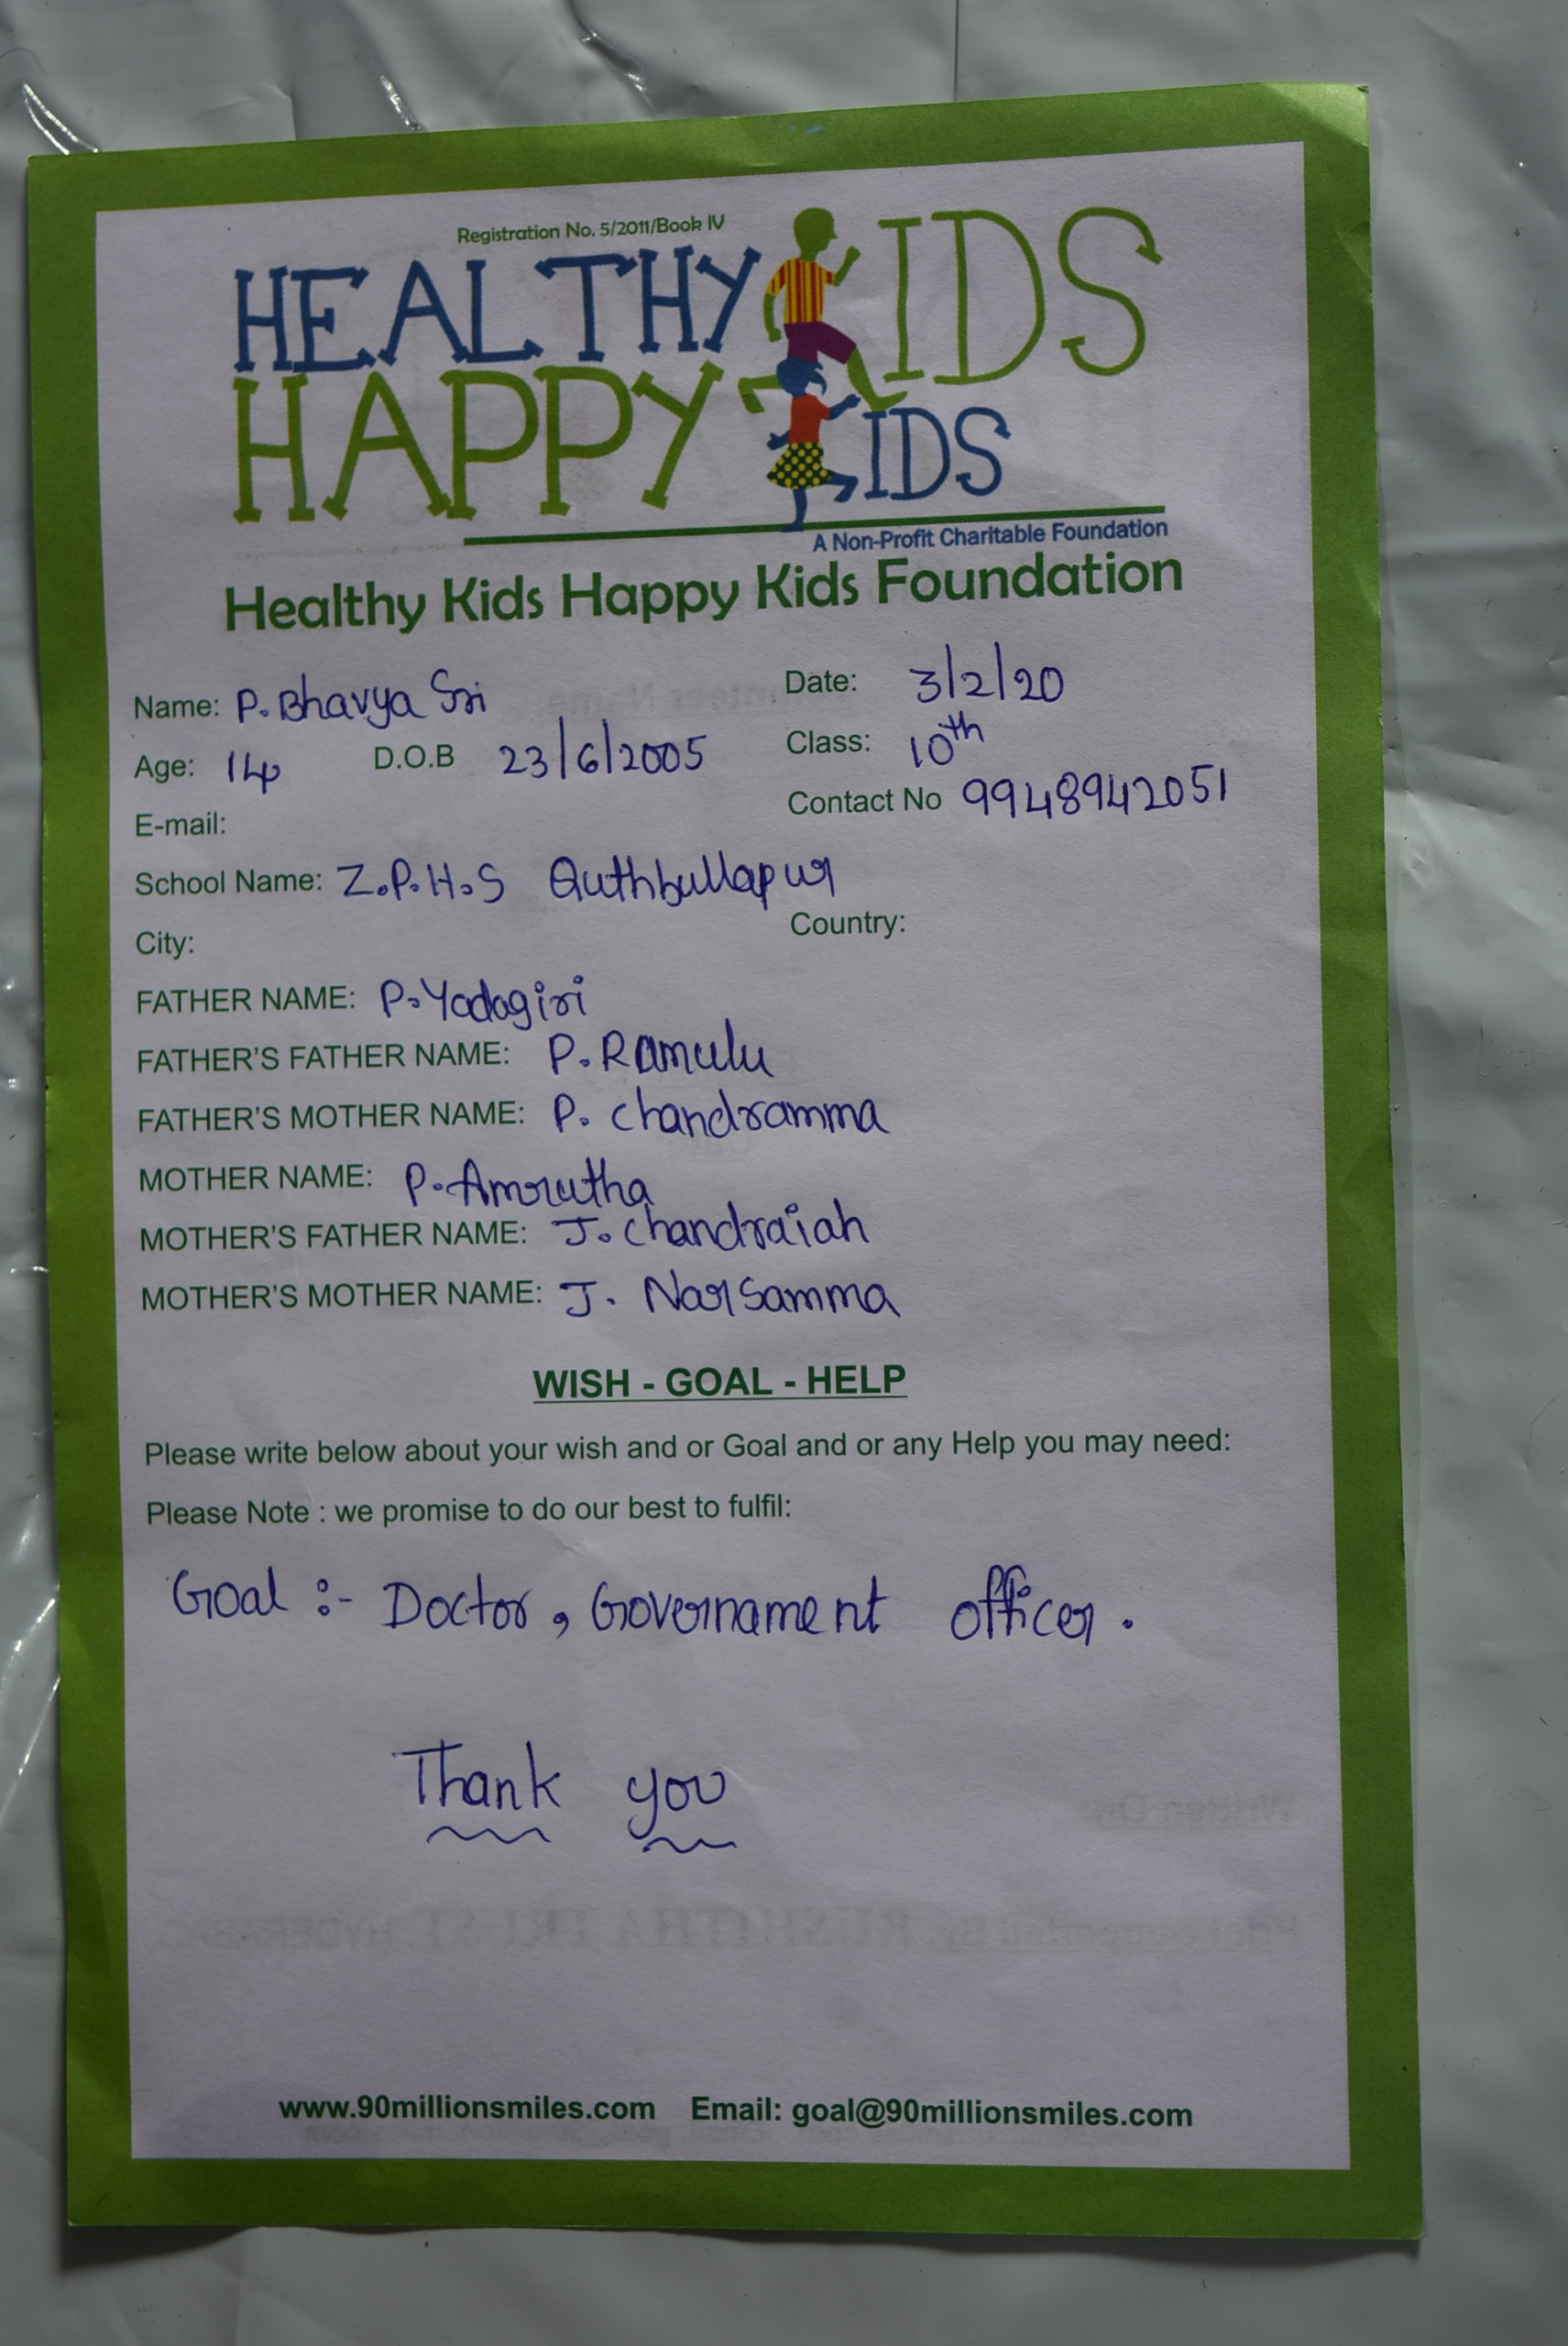 Registration No. 5/2011/Book IV
HEALTHY KIDS
HAPPY KIDS
A Non-Profit Charitable Foundation
Healthy Kids Happy Kids Foundation
Name: P. Bhavya Sri Date: 3/2/20
Age: 14 D.O.B 23/6/2005 Class: 10th
E-mail: Contact No 9948942051
School Name: Z.P.H.S Quthbullapur
City: Country:
FATHER NAME: P. Yadagiri
FATHER'S FATHER NAME: P. Ramulu
FATHER'S MOTHER NAME: P. Chandramma
MOTHER NAME: P. Amrutha
MOTHER'S FATHER NAME: J. Chandraiah
MOTHER'S MOTHER NAME: J. Narsamma
WISH - GOAL - HELP
Please write below about your wish and or Goal and or any Help you may need:
Please Note : we promise to do our best to fulfil:
Goal :- Doctor, Governament officer.
Thank you
www.90millionsmiles.com Email: goal@90millionsmiles.com